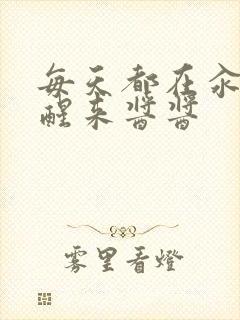 每天都在汆
醒来酱酱
雾里看燈